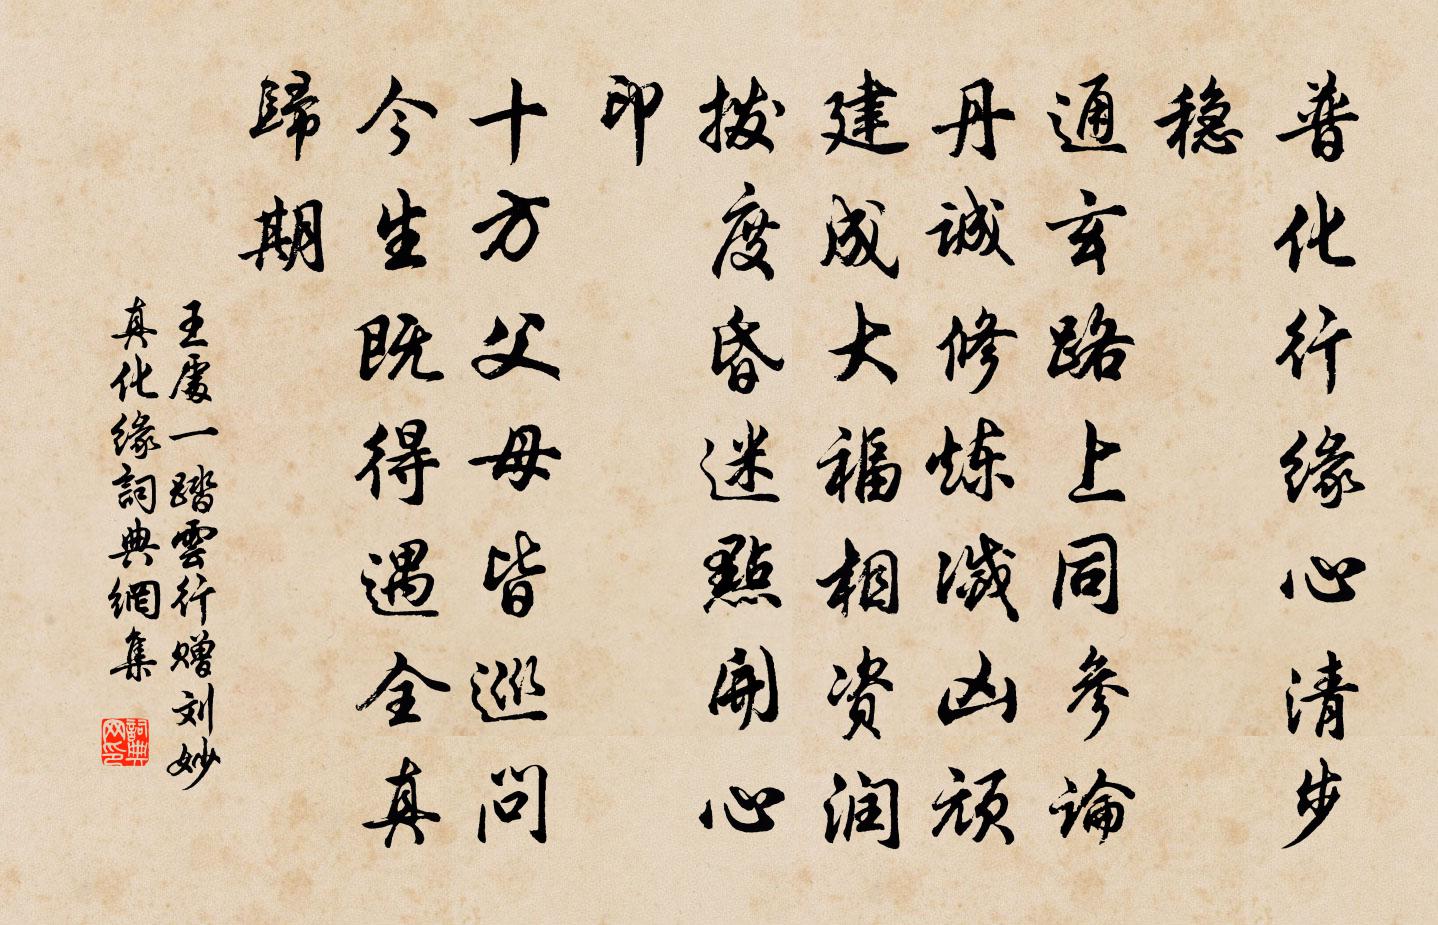 普化行缘心清步
稳
通玄路上同参論
丹诚修炼滅凶顽
建成大福相资润
拨度昏迷點開心
印
十方父母皆巡问
今生既得遇全真
歸期
王處一踏雲行赠刘妙
真化缘詞典網集
詞典
网印